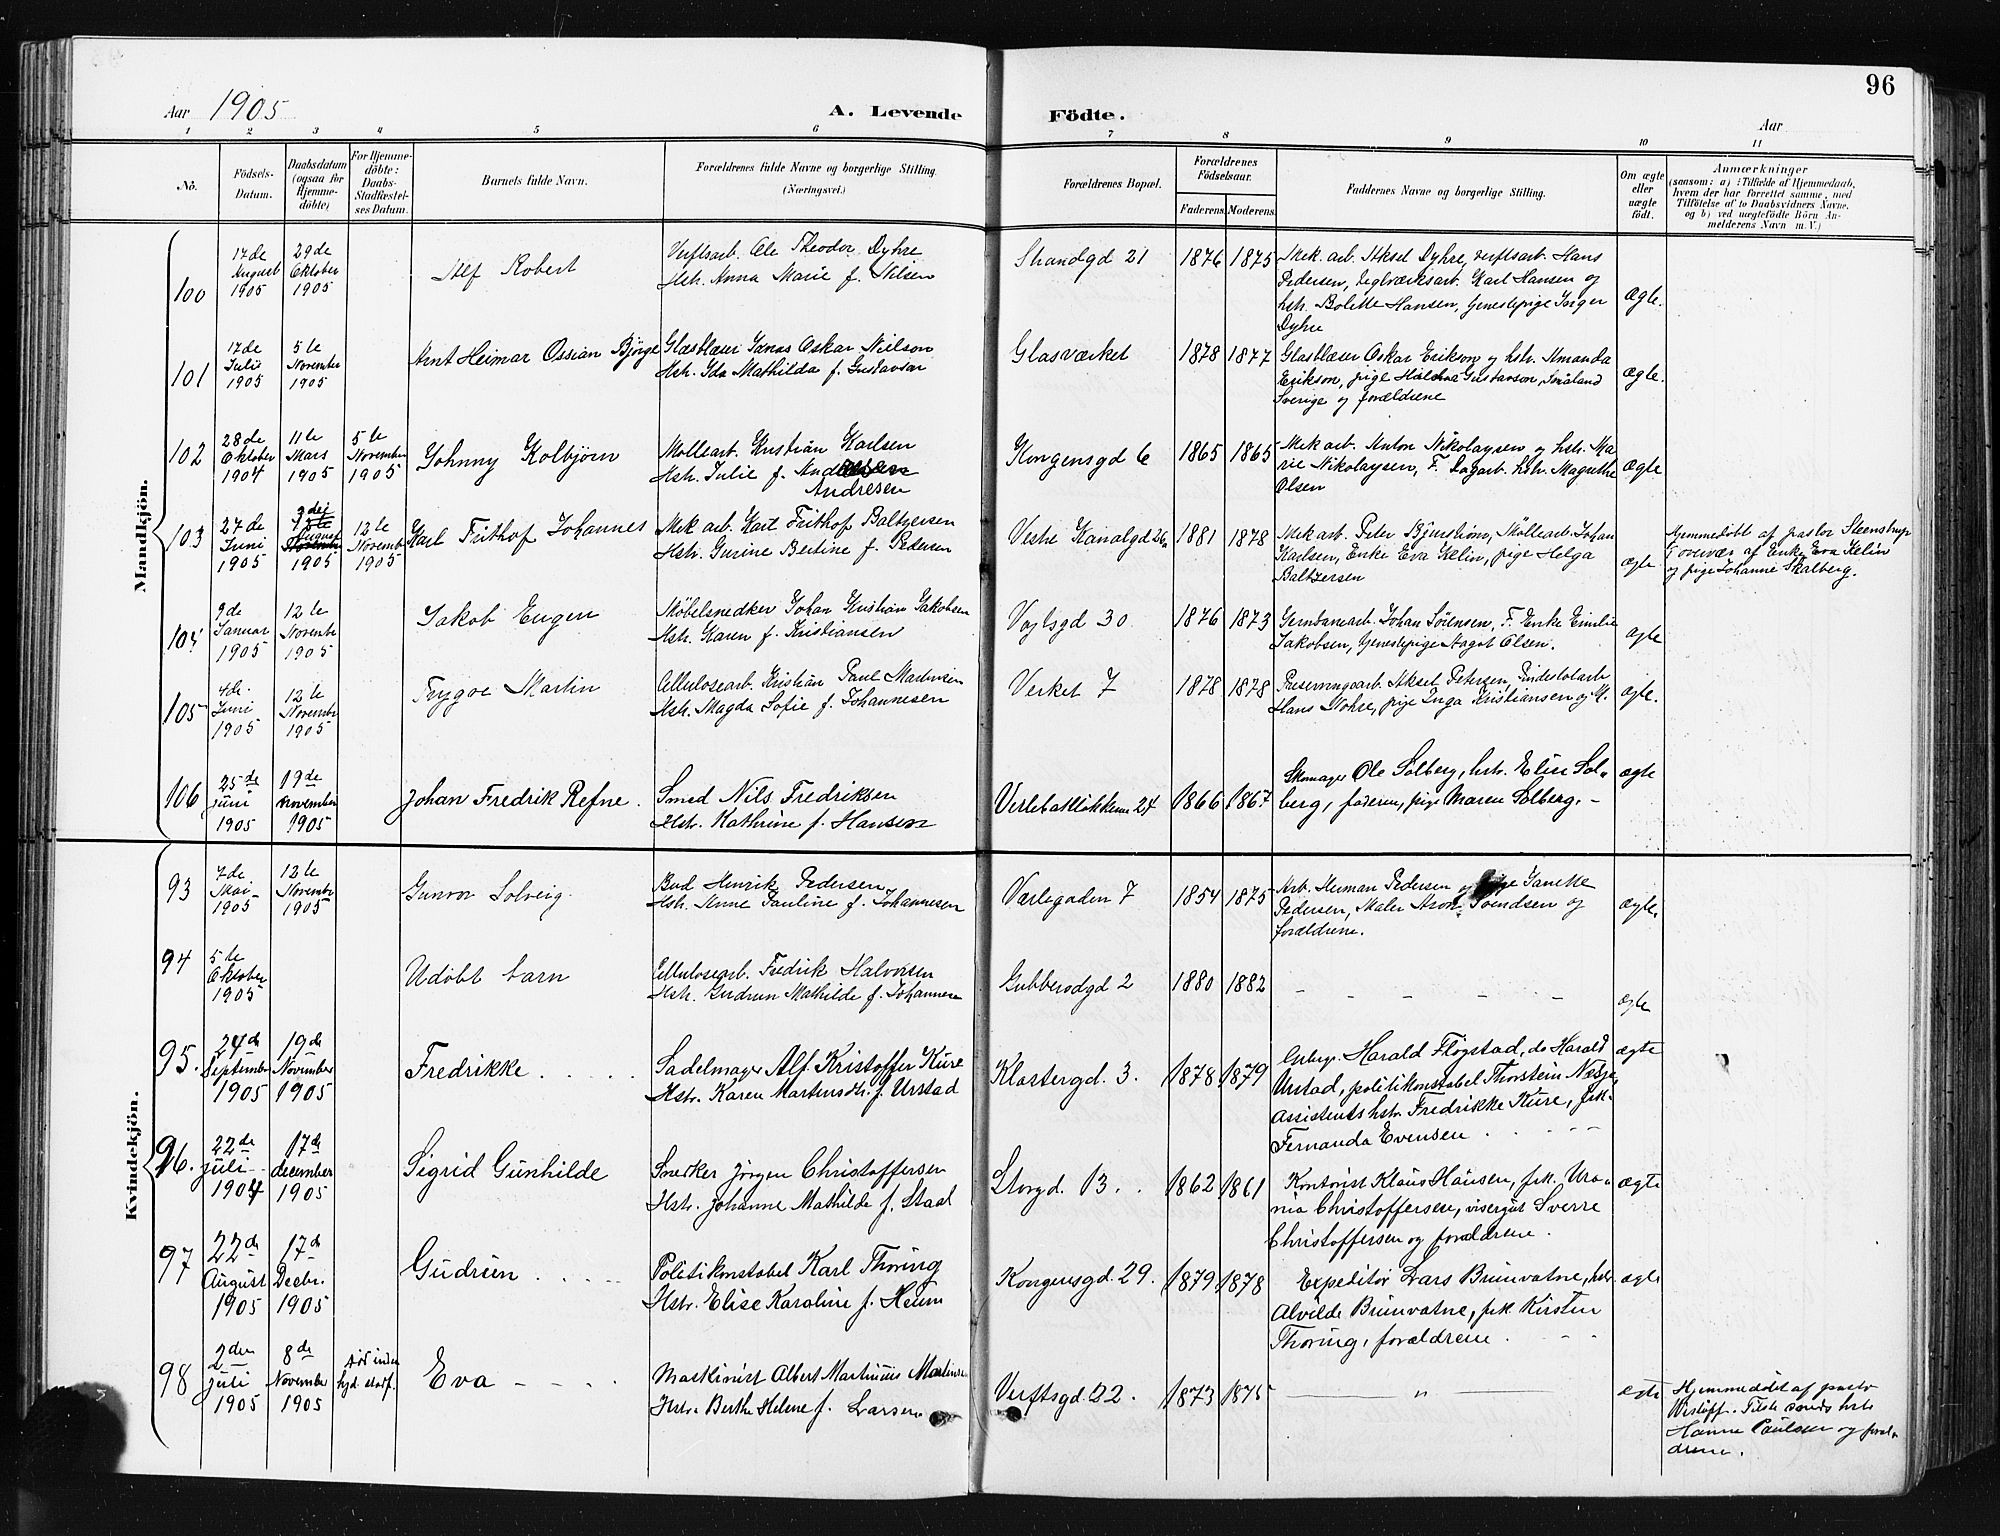 96
Aar 1905
A. Levende Födte.
Aar
1 2 3 4 5 6 7 8 9 10 11
No.
Födsels-
Datum.
Daabsdatum
(ogsaa for
Hjemme-
döbte)
For Hjemme-
döbte:
Daabs-
Stadfæstel-
ses Datum.
Barnets fulde Navn.
Forældrenes fulde Navne og borgerlige Stilling.
(Næringsvei.)
Forældrenes Bopæl.
Forældrenes
Födselsaar.
Faderens. Moderens.
Faddernes Navne og borgerlige Stilling.
Om ægte
eller
uægte
födt.
Anmærkninger
(sansom: a) i Tilfælde af Hjemmedaab,
hvem der har forrettet samme, med
Tilföielse af to Daabsvidners Navne,
og b) ved uægtefödte Börn An-
melderens Navn m. V.)
Mandkjön.
100
17de
August
1905
29de
Oktober
1905
Alf Robert
Verftsarb. Ole Theodor Dyhre
Hstr. Anna Marie f. Nilsen
Strandgd 21
1876 1875
Mek. arb. Aksel Dyhre, verftsarb. Hans
Pedersen, Teglværksarb. Karl Hansen og
hstr. Bolette Hansen, tjenestepige Inger
Dyhre
Ægte.
101
17de
Juli
1905
5te
November
1905
Arnt Heimar Ossian Bjørge
Glasblæser Jonas Oskar Nielson
Hstr. Ida Mathilda f. Gustavson
Glasværket
1878 1877
Glasblæser Oskar Erikson og hstr. Amanda
Erikson, pige Gustavson, Småland
Sverige og forældrene
ægte.
102
28de
Oktober
1904
11te
Mars
1905
5te
November
1905
Johnny Kolbjørn
Møllearb. Kristian Karlsen
Hstr. Julie f.
Andresen
Kongensgd 6
1865 1865
Mek arb. Anton Nikolaysen og hstr. Ma
rie Nikolaysen, F. Sagarb. hstr. Magnthe
Olsen
ægte
103
27de
Juni
1905
August
1905
12te
November
1905
Karl Frithof Johannes
Mek arb. Karl Frithof Baltzersen
Hstr. Gurine Bertine f. Pedersen
Vestre Kanalgd 26a
1881 1878
Mek arb. Peter Bjurstrøm, Møllearb. Johan
Karlsen, Enke Eva Kelin, pige Helga
Baltzersen
ægte
Hjemmedøbt af pastor Steenstrup
i overvær af Enke Eva Kelin
og pige Johanne Skalberg.
104
9de
Januar
1905
12te
November
1905
Jakob Eugen
Møbelsnedker Johan Kristian Jakobsen
Hstr. Karen f. Kristiansen
Voglsgd 30
1876 1873
Jernbanearb. Johan Sørensen, F. Enke Emilie
Jakobsen, tjenestepige Aagot Olsen.
ægte
105
4de
Juni
1905
12te
November
1905
Trygve Martin
Cellulosearb. Kristian Paul Martinsen
Hstr. Magda Sofie f. Johannesen
Verket 7
1878 1878
Preserveringsarb. Aksel Petersen,
Hans Mohre, pige Inga Kristiansen og M.
ægte.
106
25de
juni
1905
19de
november
1905
Johan Fredrik Refne.
Smed Nils Fredriksen
Hstr. Kathrine f. Hansen
Verlebakløkken 24
1866 1867
Skomager Ole Solberg, hstr. Elise Sol=
berg, faderen, pige Maren Solberg. -
ægte
Kvindekjön.
93
7de
Mai
1905
12te
November
1905
Gunvor Solveig
Bud Henrik Pedersen
Hstr. Anne Pauline f. Johannesen
Værlegaden 7
1854 1875
Arb. Herman Pedersen og pige Janette
Pedersen, Maler Aron Svendsen og
forældrene.
ægte.
94
5te
Oktober
1905
Udøbt barn
Cellulosearb. Fredrik Halvorsen
Hstr. Gudrun Mathilde f. Johannesen
Gubbersdgd 2
1880 1882
- - - - - -
ægte
95.
24de
September
1905
19de
November
1905
Fredrikke . . . .
Sadelmager Alf Kristoffer Kure
Hstr. Karen Martensdtr. f. Urstad
Klostergd. 3.
1878 1879
Harald Fløgstad, do Harald
Urstad, politikonstabel Thorstein Nesje,
Assistents hstr Fredrikke Kure, frk.
Fernanda Evensen . . - -
ægte
96.
22de
juli
1904
17de
december
1905
Sigrid Gunhilde
Snekker Jørgen Christoffersen
Hstr. Johanne Mathilde f. Staal
Storgd. 13.
1862 1861
Kontorist Klaus Hansen, frk. Ura=
nia Christoffersen, visergut Sverre
Christoffersen og forældrene.
ægte
97
22de
August
1905
17de
Decbr.
1905
Gudrun . - . . -
Politikonstabel Karl Thoring
Hstr. Elise Karoline f. Heum
Kongensgd. 29.
1879 1878
Expeditør Lars Brunvatne, hstr
Alvilde Brunvatne, frk Kirsten
Thoring, forældrene. - -
ægte
98
2den
juli
1905
8de
November
1905
død inden
hjd. stadf.
Eva - - - -
Maskinist Albert Martinius Martinsen
Hstr. Berthe Helene f. Larsen
Verftsgd. 22.
1873 1875
"
ægte
Hjemmedøbt af pastor
Wisløff. Tilstede hstr
Hanne Paulsen og foræl=
drene.